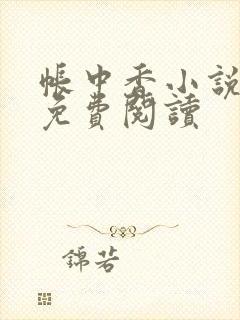 帳中香小說
免費閱讀
錦若